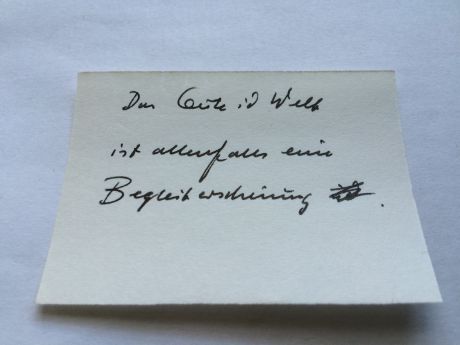 Das Gute i d Welt
ist allenfalls eine
Begleiterscheinung .